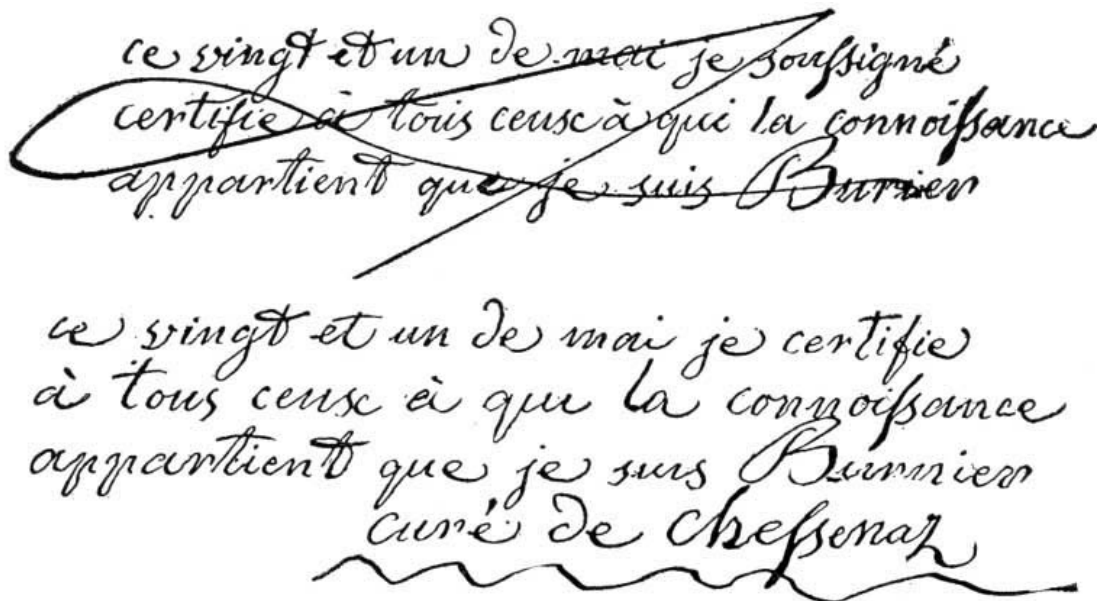 ce vingt et un de mai je soussigné
certifie à tous ceux à qui la connoissance
appartient que je suis Burnier
ce vingt et un de mai je certifie
à tous ceux à qui la connoissance
appartient que je suis Burnier
curé de chessenaz